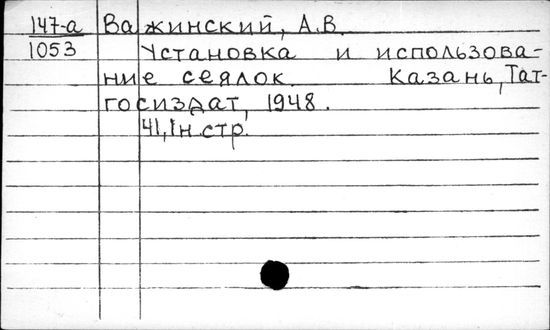 147-а Важинский, А.В.
1053 Установка и использова-
ние сеялок. Казань, Тат-
госиздат, 1948.
41, 1н.стр.